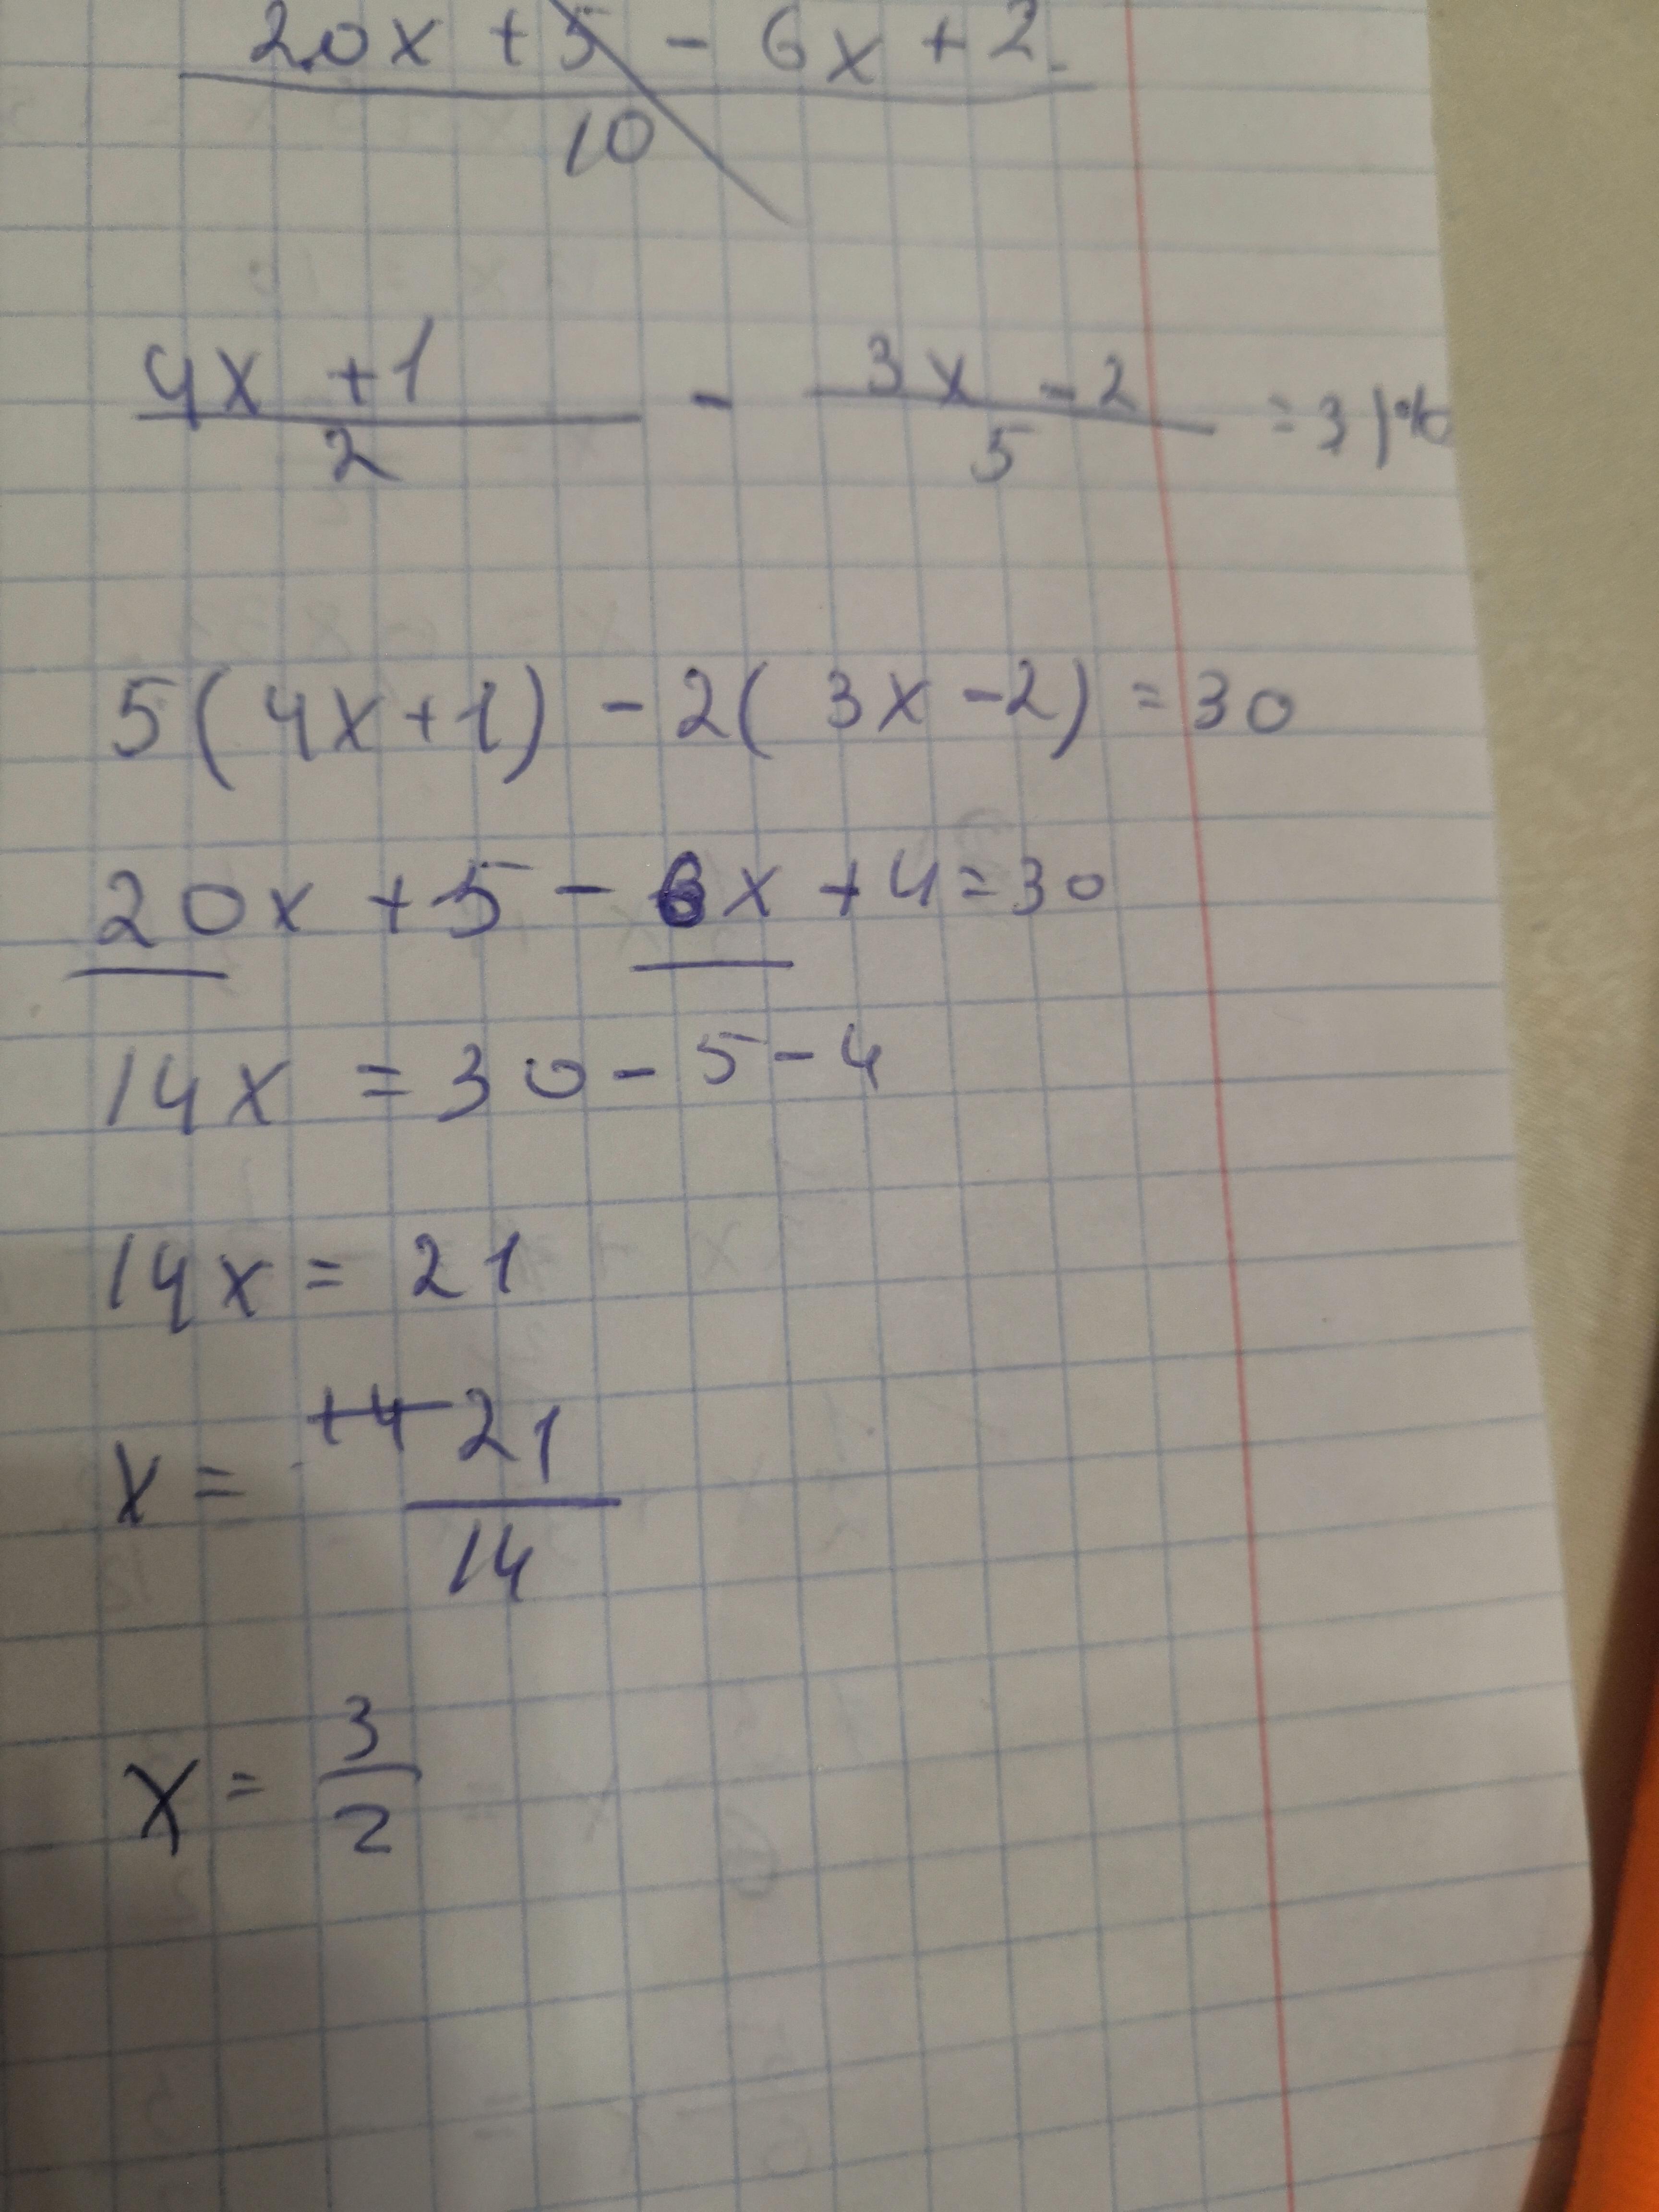 20x + 5 - 6x + 2
10
4x + 1 - 3x - 2 = 3 |
2 5
5(4x+1) - 2(3x-2) = 30
20x + 5 - 6x + 4 = 30
14x = 30 - 5 - 4
14x = 21
x = +4 21
14
x = 3
2